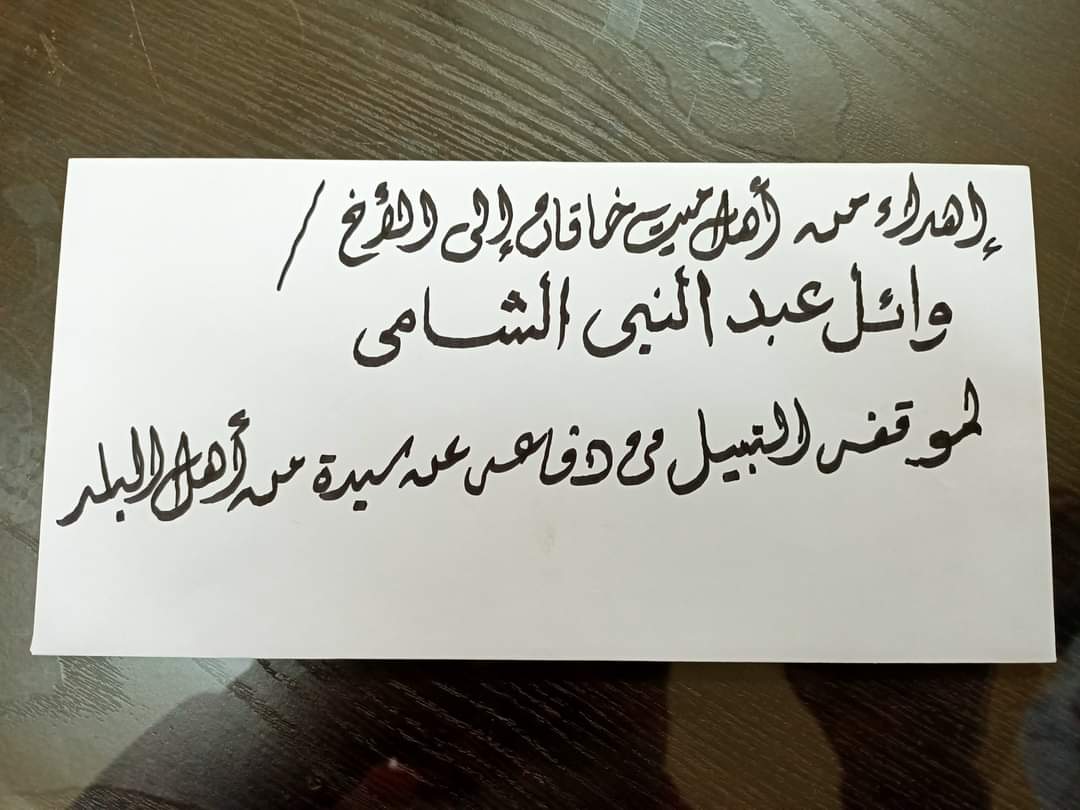 إهداء من أهل ميت خاقان إلى الأخ /
وائل عبد النبى الشامى
لموقفه النبيل فى دفاعه عن سيدة من أهل البلد